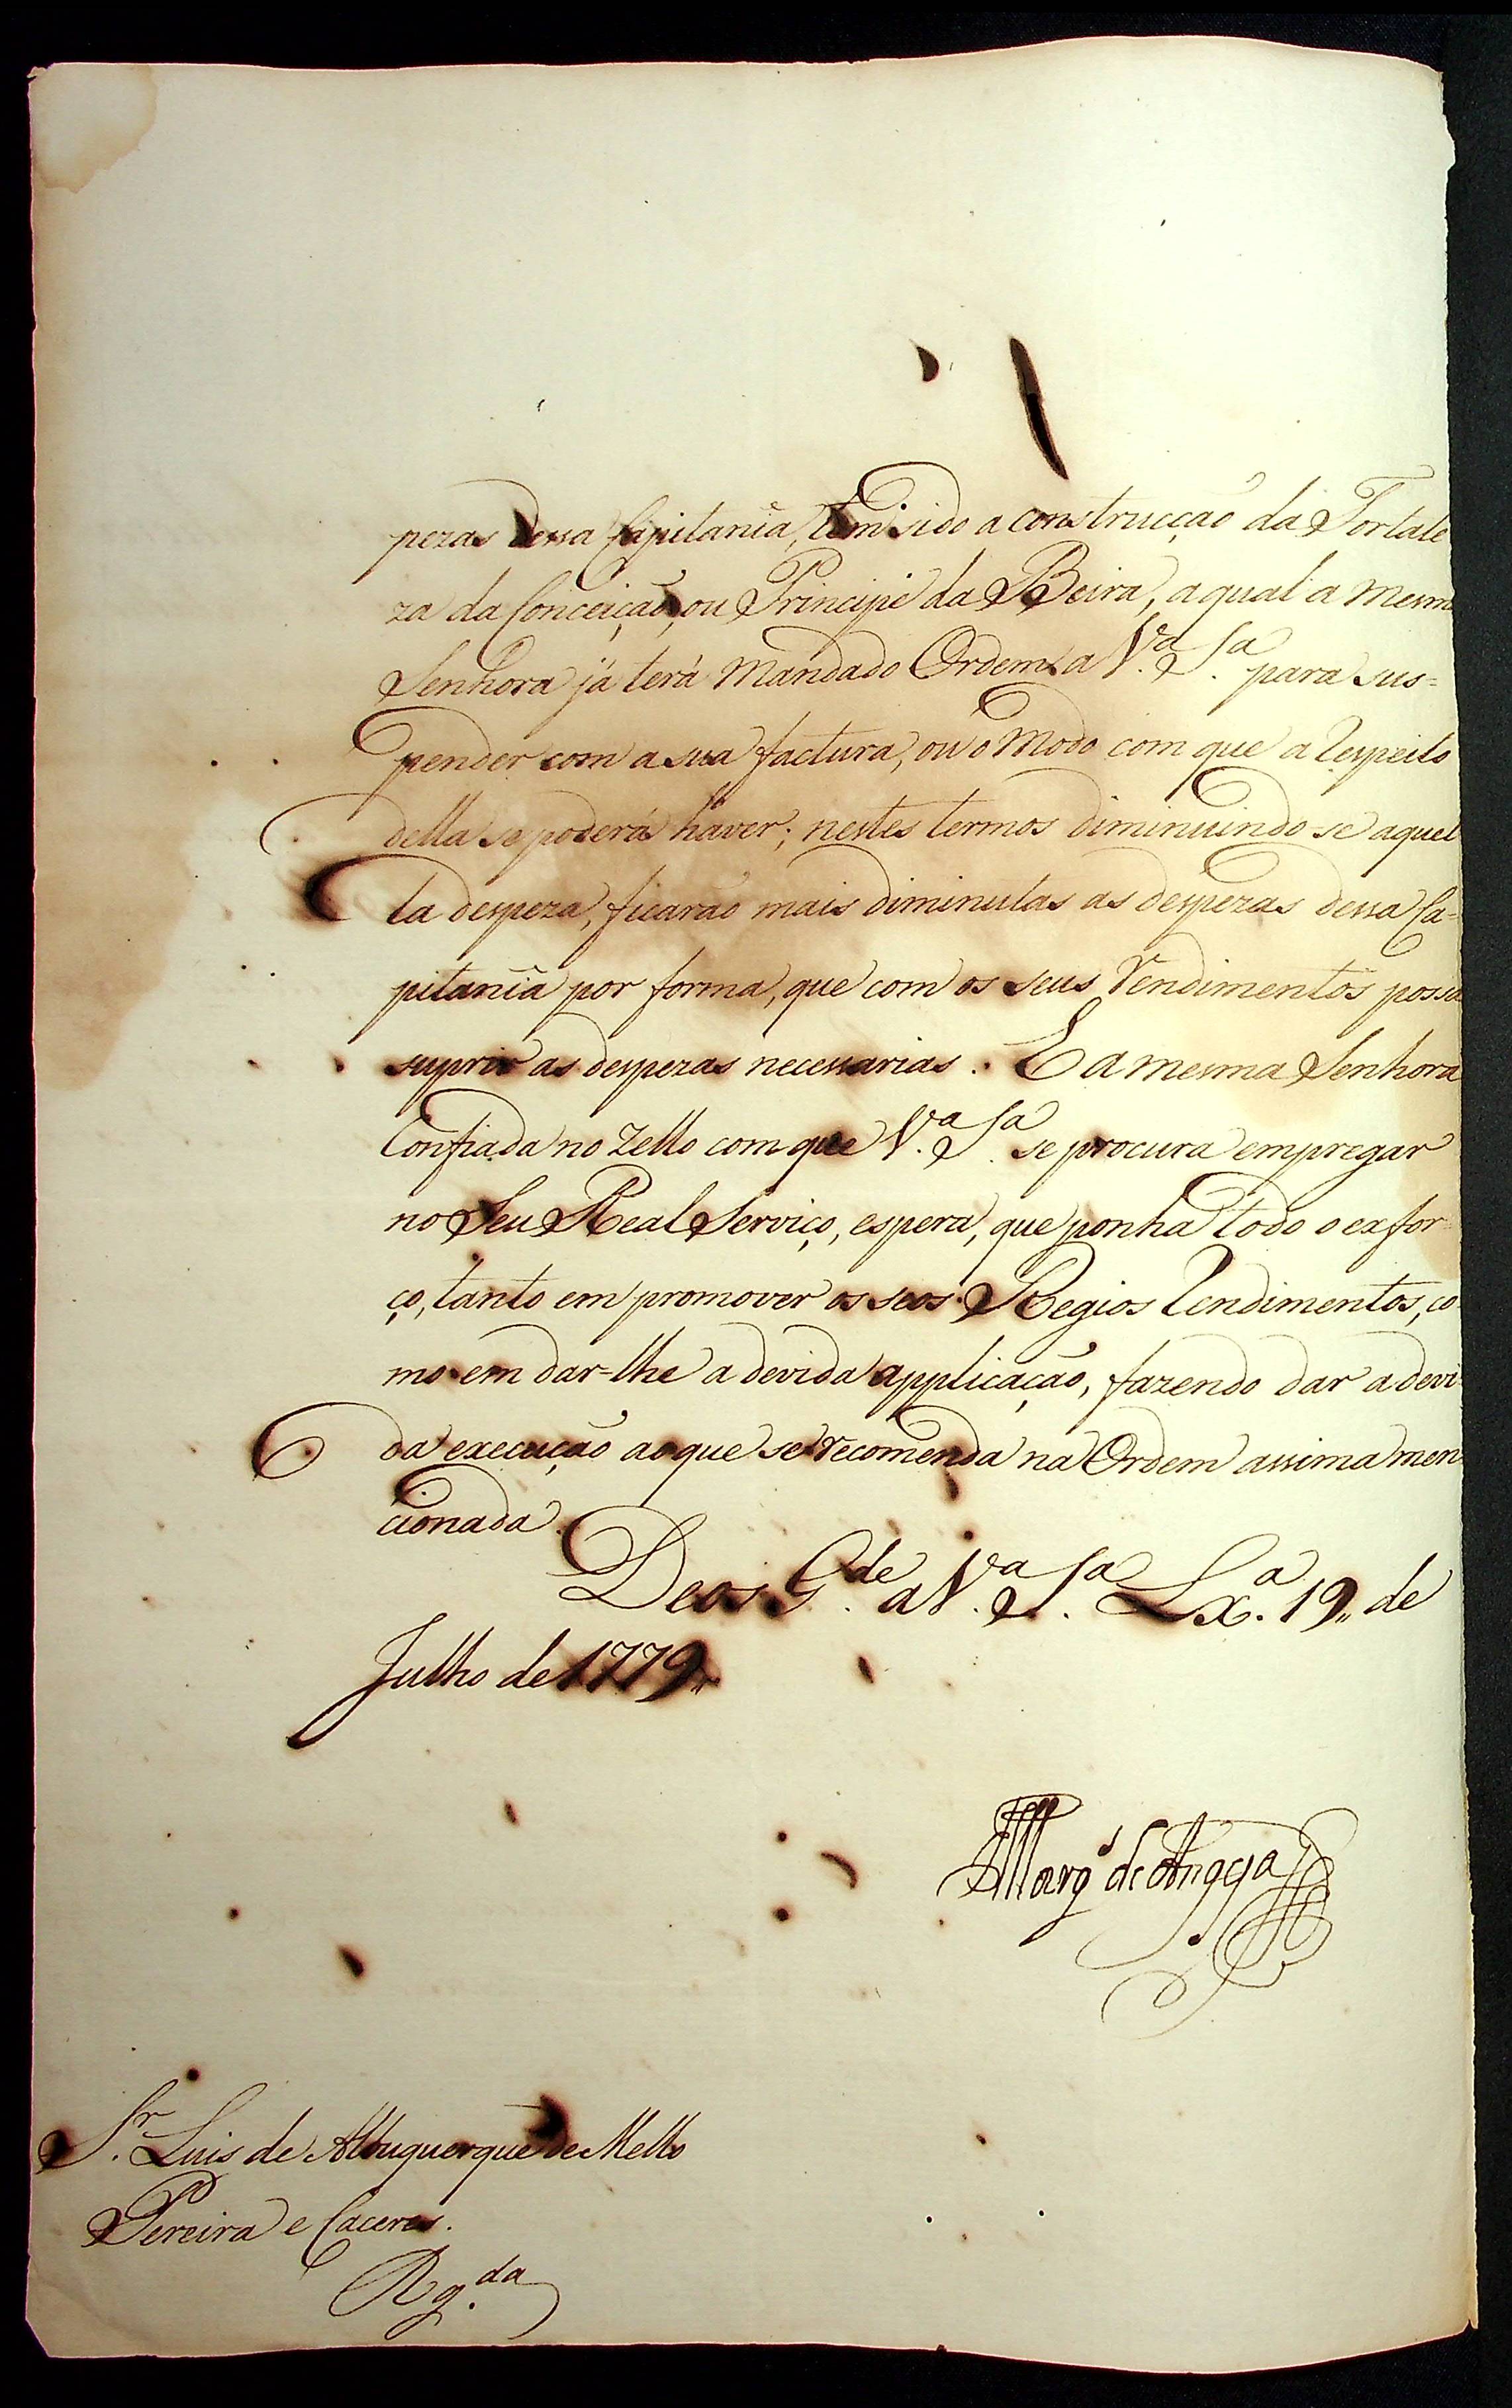 pezas dessa Capitanîa, tem sido a construcção da Fortale
za da Conceição, ou Principe da Beira, a qual a mesma
Senhora já terá Mandado Ordem a V.ª S.ª para sus=
pender com a sua factura, ou o Modo com que a respeito
della se poderá haver; nestes termos diminuindo-se aquel
la despeza, ficarão mais diminutas as despezas dessa Ca=
pitanîa por forma, que com os seus rendimentos possa
suprir as despezas necessarias. E a mesma Senhora
Confiada no zello com que V.ª S.ª se procura empregar
no Seu Real Serviço, espera, que ponha todo o exfor
ço, tanto em promover os seos Regios rendimentos, co
mo em dar-lhe a devida applicação, fazendo dar a devi
da execução ao que se recomenda na Ordem assima men
cionada.
Deos G.de a V.ª S.ª Lx.ª 19,, de
Julho de 1779
Marqˢ de Angeja
S.r Luis de Albuquerque de Mello
Pereira e Caceres.
Rg.da